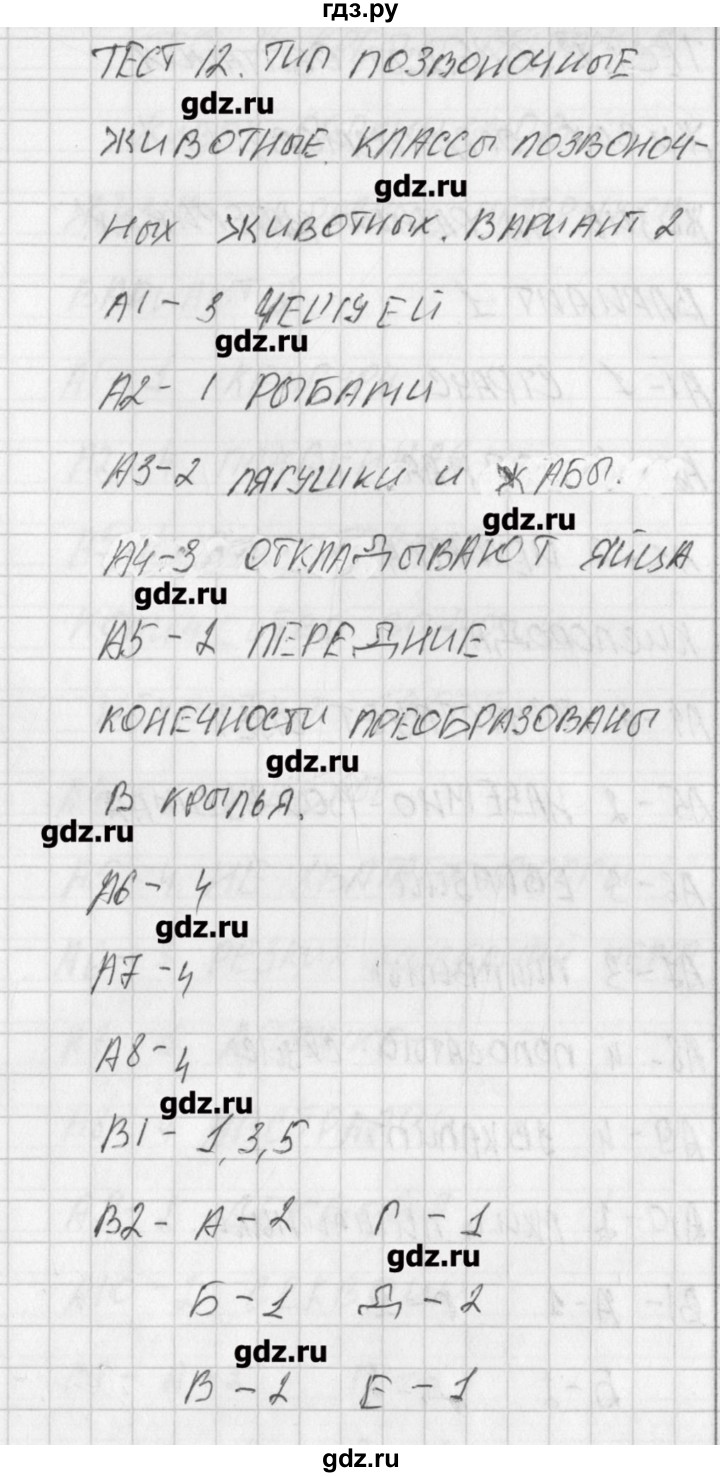 гдз.ру
ТЕСТ 12. ТИП ПОЗВОНОЧНЫЕ
gdz.ru
ЖИВОТНЫЕ. КЛАССЫ ПОЗВОНОЧ-
gdz.ru
НЫХ ЖИВОТНЫХ. ВАРИАНТ 2
А1 - 3 ЧЕШУЕЙ
gdz.ru
А2 - 1 РЫБАМИ
А3 - 2 ЛЯГУШКИ И ЖАБЫ.
gdz.ru
А4 - 3 ОТКЛАДЫВАЮТ ЯЙЦА
gdz.ru
А5 - 2 ПЕРЕДНИЕ
КОНЕЧНОСТИ ПРЕОБРАЗОВАНЫ
gdz.ru
В КРЫЛЬЯ.
gdz.ru
А6 - 4
gdz.ru
А7 - 4
А8 - 4
gdz.ru
В1 - 1,3,5
В2 - А - 2 Г - 1
gdz.ru
Б - 1 Д - 2
gdz.ru
В - 2 Е - 1
gdz.ru